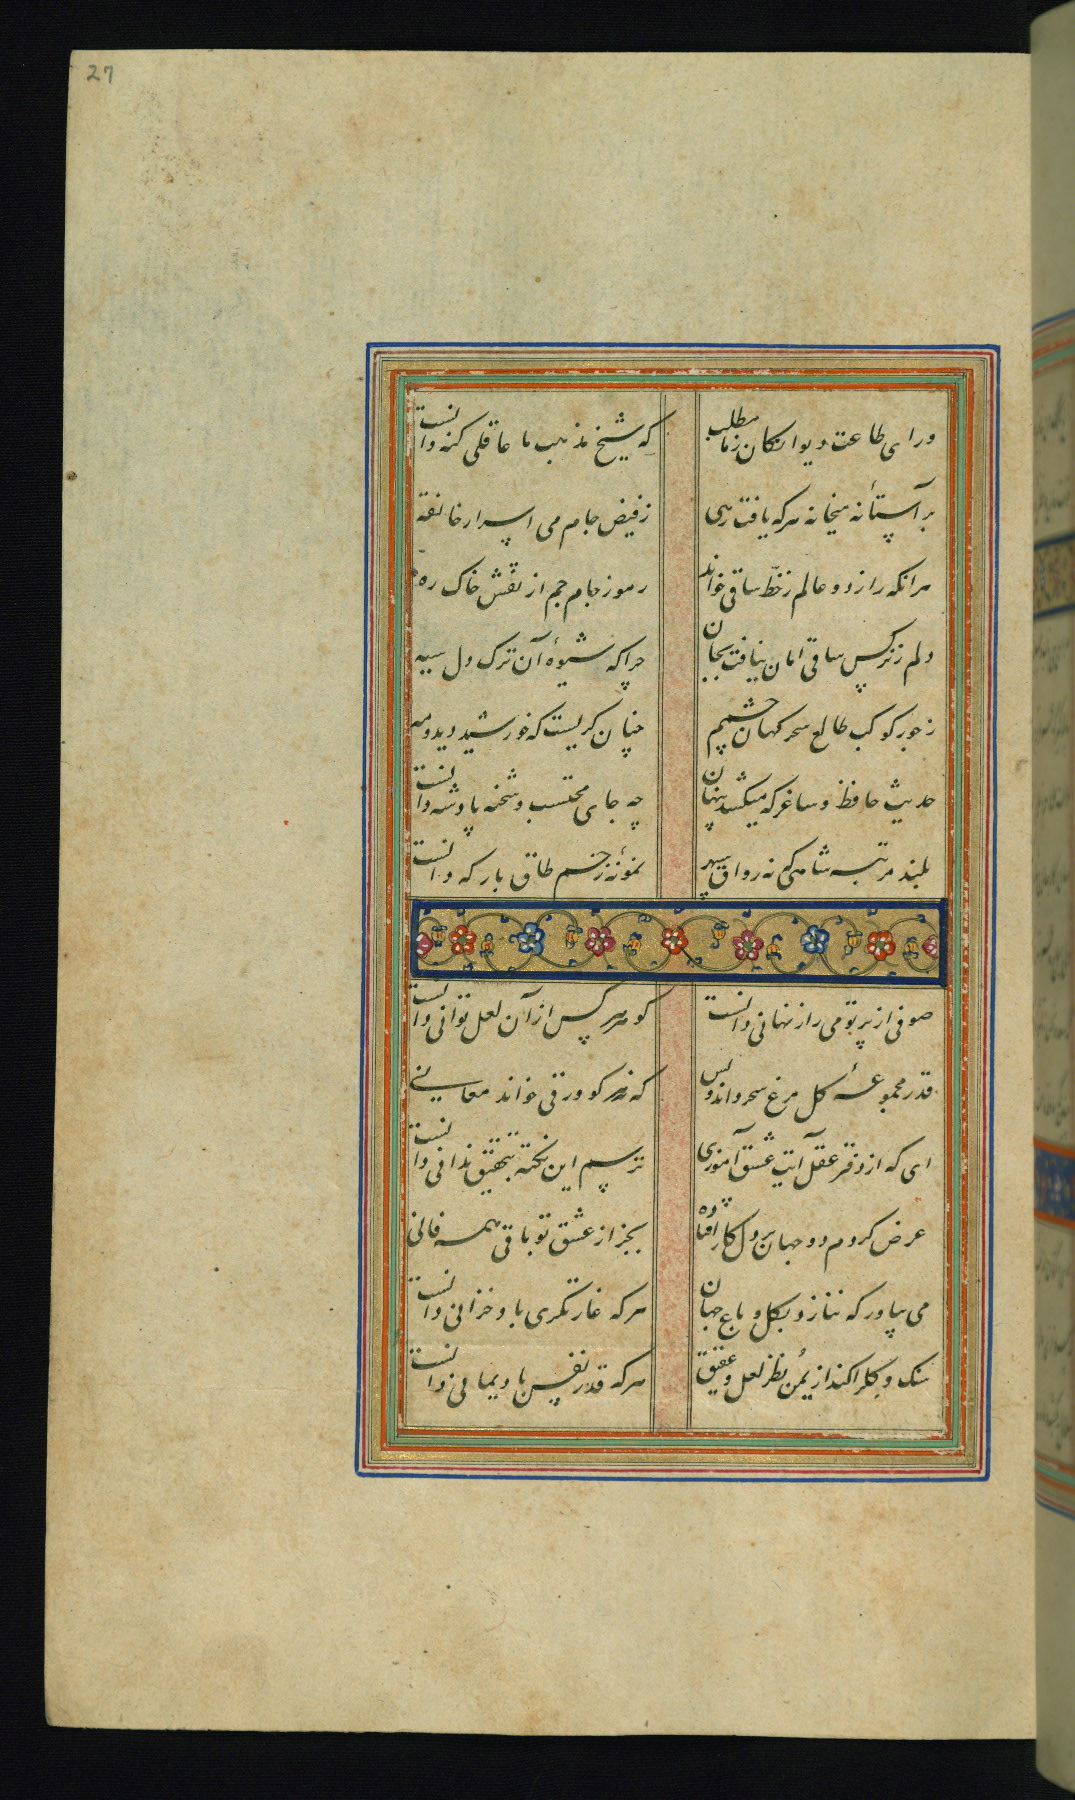 27
ورای طاعت دیوانکان زما مطلب
که شیخ مذهب ما عاقلی کنه دانست
بر آستانه میخانه هرکه یافت رهی
زفیض جام می اسرار خانقه
هرانکه راز دو عالم زخط ساقی خواند
رموز جام جم از نقش خاک ره
دلم زنرکس ساقی امان نیافت بجان
چراکه شیوهٔ آن ترک دل سیه
زجور کوکب طالع سحرکهان چشمم
چنان کریست که خورشید دید و مه
حدیث حافظ و ساغر که میکشد پنهان
چه جای محتسب و شحنه پادشه دانست
بلند مرتبه شاهی که نه رواق سپهر
نمونهٔ زخم طاق بارکه دانست
صوفی از پرتو می راز نهانی دانست
کوهر هرکس از آن لعل توانی دانست
قدر مجموعهٔ کل مرغ سحر داند و بس
که نه هرکو ورقی خواند معانی
ای که از دفتر عقل آیت عشق آموزی
ترسم این نکته بتحقیق ندانی دانست
عرض کردم دو جهان بر دل کار افتاده
بجز از عشق تو باقی همه فانی
می بیاور که ننازد بکل و باغ جهان
هرکه غارتکری باد خزانی دانست
سنک و کل را کند از یُمن نظر لعل و عقیق
هرکه قدر نفس باد یمانی دانست